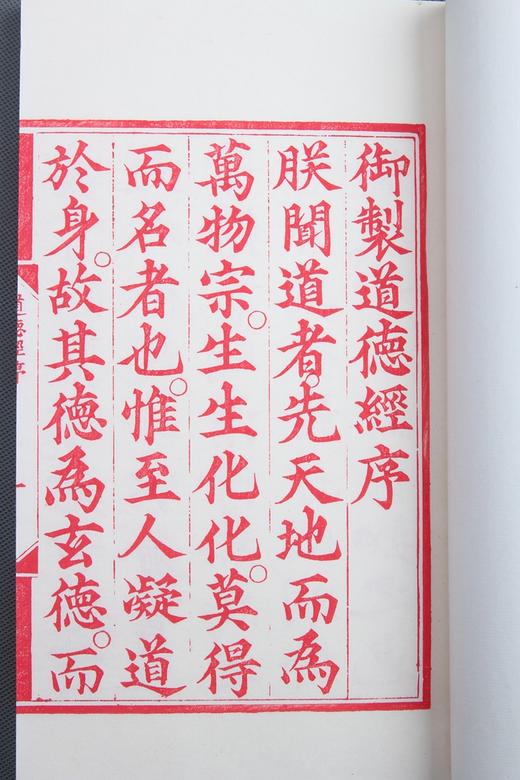 御製道德經序
朕聞道者先天地而為
萬物宗○生生化化○莫得
而名者也○惟至人凝道
於身○故其德為玄德○而
道德經序
一